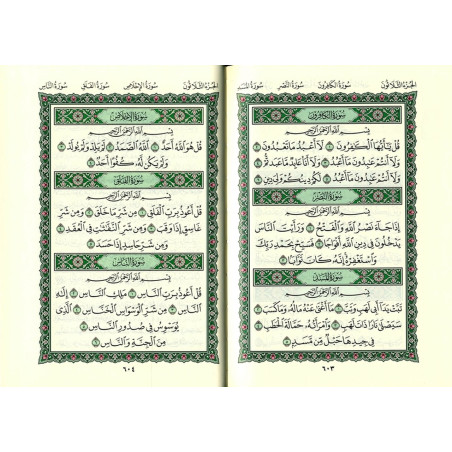 سورة المسد سورة النصر سورة الكافرون الجزء الثلاثون
سورة الكافرون
بسم الله الرحمن الرحيم
قل يأيها الكفرون ۝١ لا أعبد ما تعبدون ۝٢
ولا أنتم عبدون ما أعبد ۝٣ ولا أنا عابد ما عبدتم ۝٤
ولا أنتم عبدون ما أعبد ۝٥ لكم دينكم ولي دين ۝٦
سورة النصر
بسم الله الرحمن الرحيم
إذا جاء نصر الله والفتح ۝١ ورأيت الناس
يدخلون في دين الله أفواجا ۝٢ فسبح بحمد ربك
واستغفره إنه كان توابا ۝٣
سورة المسد
بسم الله الرحمن الرحيم
تبت يدا أبي لهب وتب ۝١ ما أغنى عنه ماله وما كسب ۝٢
سيصلى نارا ذات لهب ۝٣ وامرأته حمالة الحطب ۝٤
في جيدها حبل من مسد ۝٥
٦٠٣
الجزء الثلاثون سورة الإخلاص سورة الفلق سورة الناس
سورة الإخلاص
بسم الله الرحمن الرحيم
قل هو الله أحد ۝١ الله الصمد ۝٢ لم يلد ولم يولد ۝٣
ولم يكن له كفوا أحد ۝٤
سورة الفلق
بسم الله الرحمن الرحيم
قل أعوذ برب الفلق ۝١ من شر ما خلق ۝٢ ومن شر
غاسق إذا وقب ۝٣ ومن شر النفثت في العقد ۝٤
ومن شر حاسد إذا حسد ۝٥
سورة الناس
بسم الله الرحمن الرحيم
قل أعوذ برب الناس ۝١ ملك الناس ۝٢ إله
الناس ۝٣ من شر الوسواس الخناس ۝٤ الذي
يوسوس في صدور الناس ۝٥
من الجنة والناس ۝٦
٦٠٤